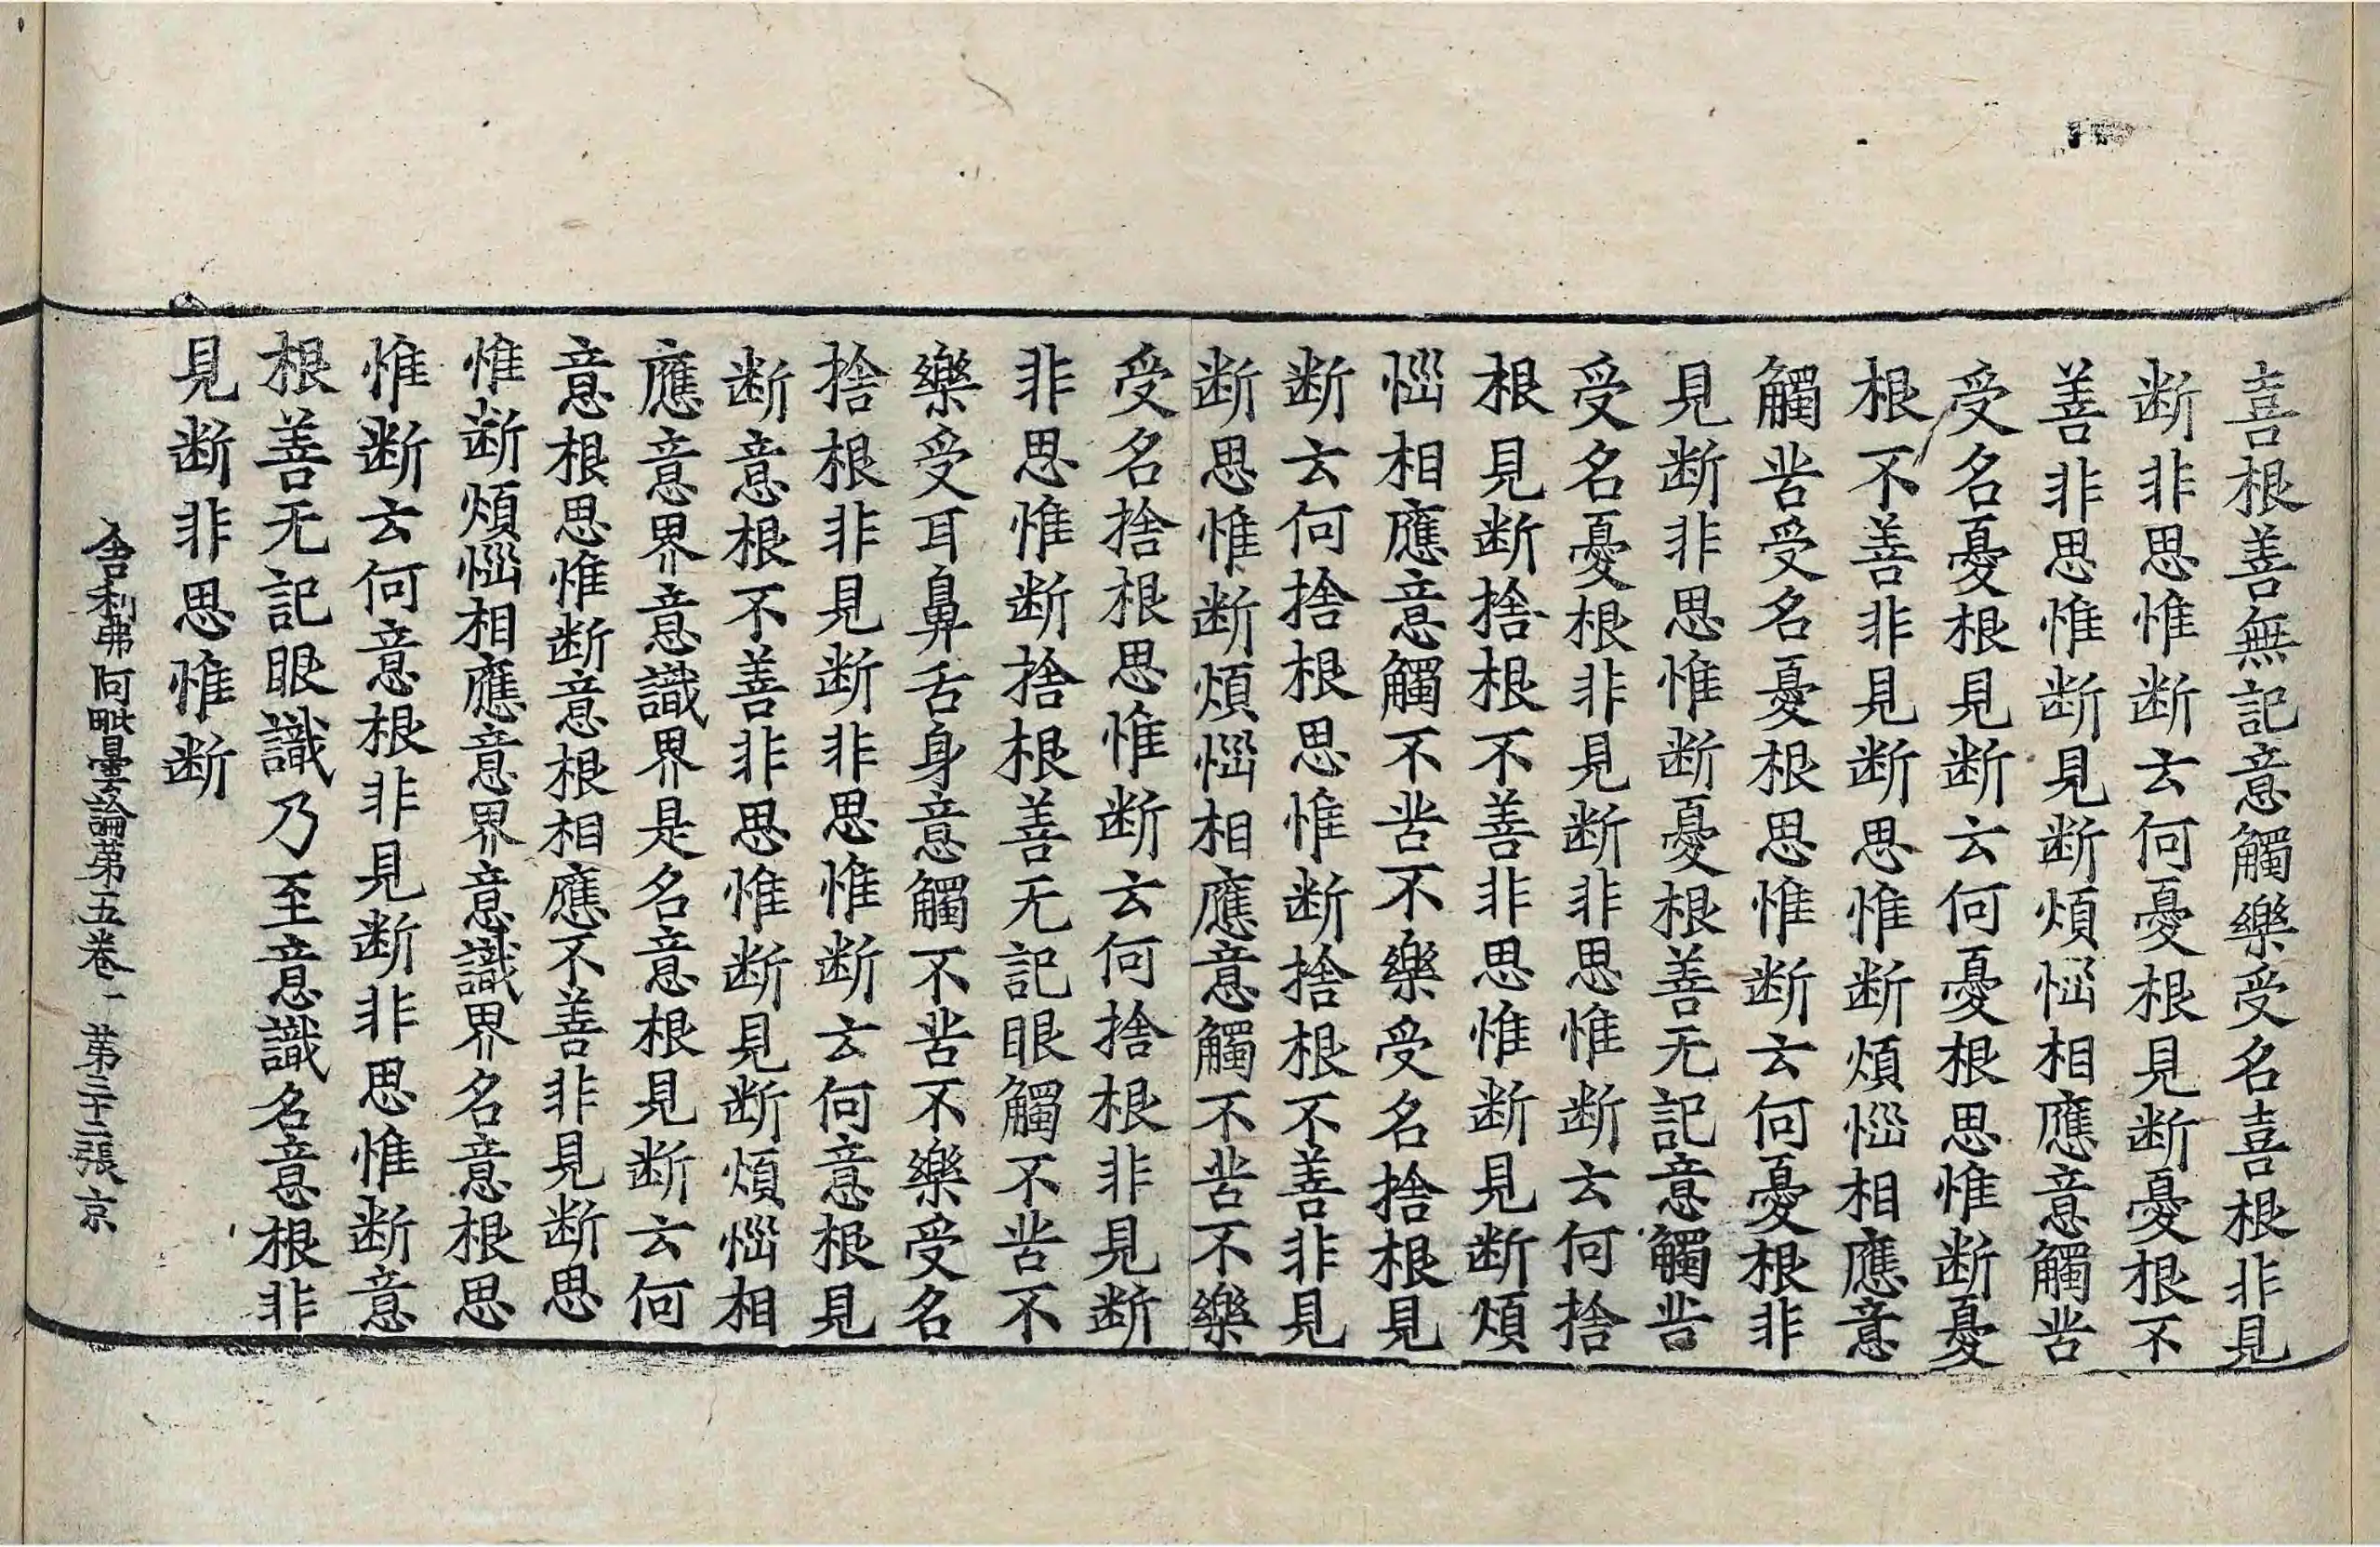 喜根善無記意觸樂受名喜根非見
断非思惟断云何憂根見断憂根不
善非思惟断見断煩惱相應意觸苦
受名憂根見断云何憂根思惟断憂
根不善非見断思惟断煩惱相應意
觸苦受名憂根思惟断云何憂根非
見断非思惟断憂根善无記意觸苦
受名憂根非見断非思惟断云何捨
根見断捨根不善非思惟断見断煩
惱相應意觸不苦不樂受名捨根見
断云何捨根思惟断捨根不善非見
断思惟断煩惱相應意觸不苦不樂
受名捨根思惟断云何捨根非見断
非思惟断捨根善无記眼觸不苦不
樂受耳鼻舌身意觸不苦不樂受名
捨根非見断非思惟断云何意根見
断意根不善非思惟断見断煩惱相
應意界意識界是名意根見断云何
意根思惟断意根相應不善非見断思
惟断煩惱相應意界意識界名意根思
惟断云何意根非見断非思惟断意
根善无記眼識乃至意識名意根非
見断非思惟断
舍利弗阿毗曇論第五卷 第三十二張 京